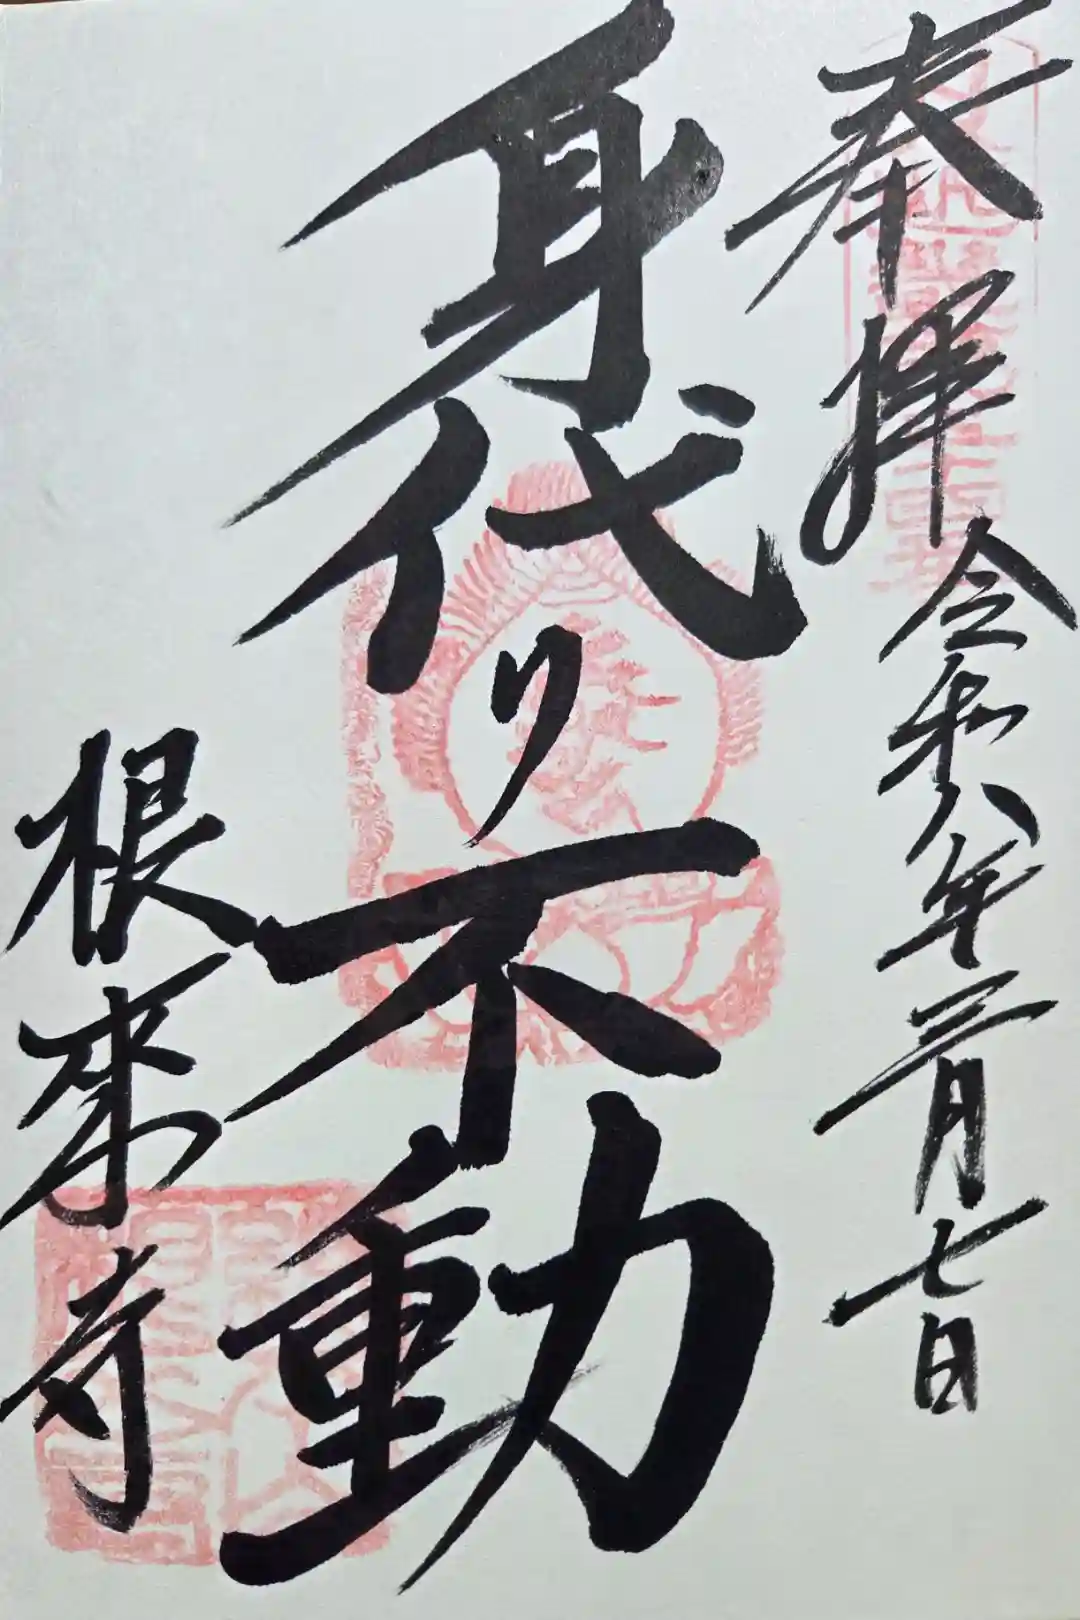 奉拝
令和八年三月七日
身代り不動
根来寺